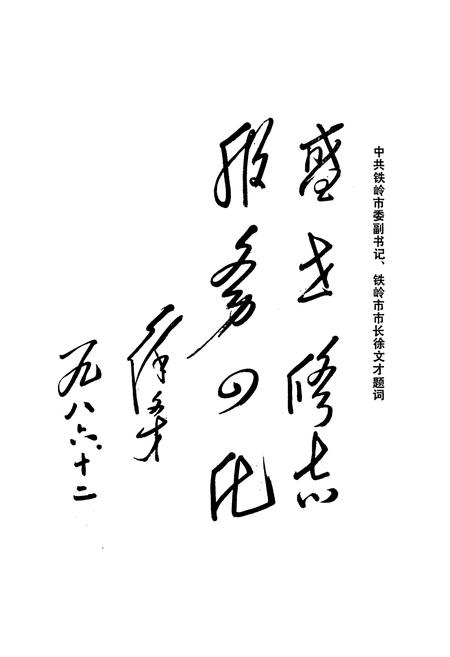 中共铁岭市委副书记、铁岭市市长徐文才题词
盛世修志
服务四化
徐文才
一九八六.十二